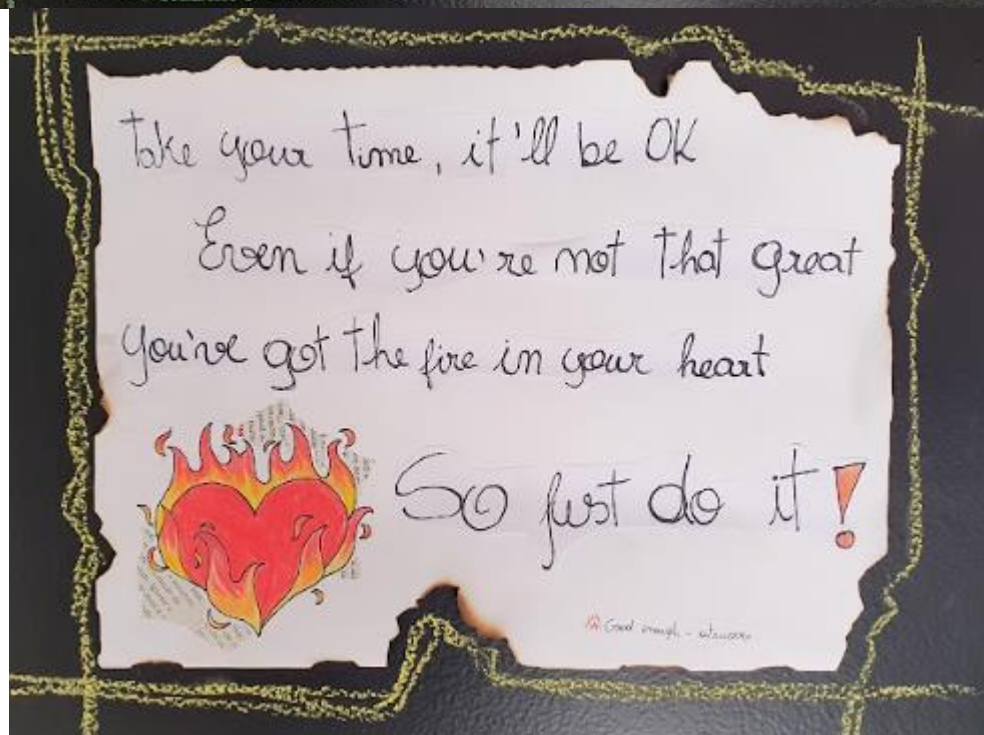 Take your time, it'll be OK
Even if you're not that great
You've got the fire in your heart
So just do it!
Good enough -